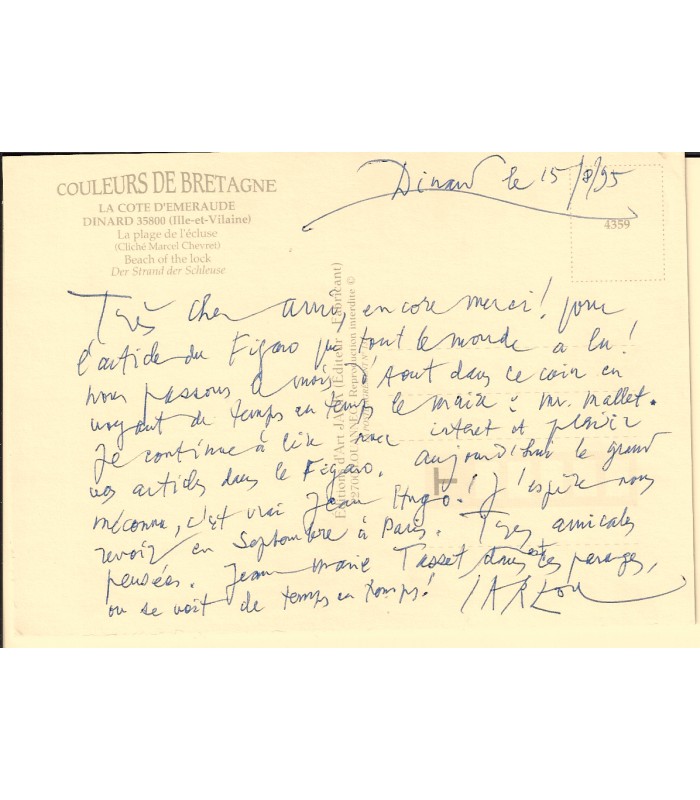 COULEURS DE BRETAGNE
LA COTE D'EMERAUDE
DINARD 35800 (Ille-et-Vilaine)
La plage de l'écluse
(Cliché Marcel Chevret)
Beach of the lock
Der Strand der Schleuse
Dinard le 15/8/95
4359
Très cher ami, encore merci! pour
l'article du Figaro que tout le monde a lu!
nous passons le mois d'Aout dans ce coin en
voyant de temps en temps le maire : Mr. Mallet.
Je continue à lire avec interet et plaisir
vos articles dans le Figaro. aujourd'hui le grand
méconnu, c'est vrai Jean Hugo! J'espère vous
revoir en Septembre à Paris. Très amicales
pensées. Jean Marie Tasset est dans ces parages,
on se voit de temps en temps!
Editions d'Art JACK (Editeur - Fabricant)
LOUANNEC Reproduction interdite ©